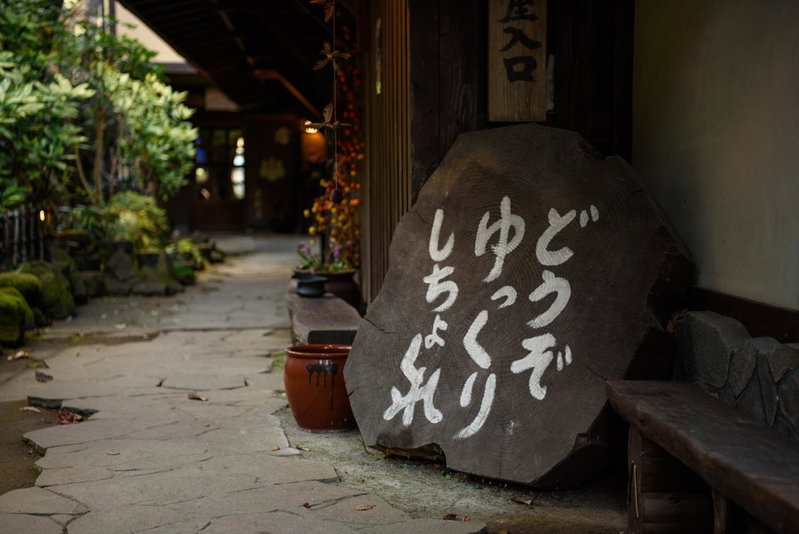 屋入口
どうぞ
ゆっくり
しちょくれ